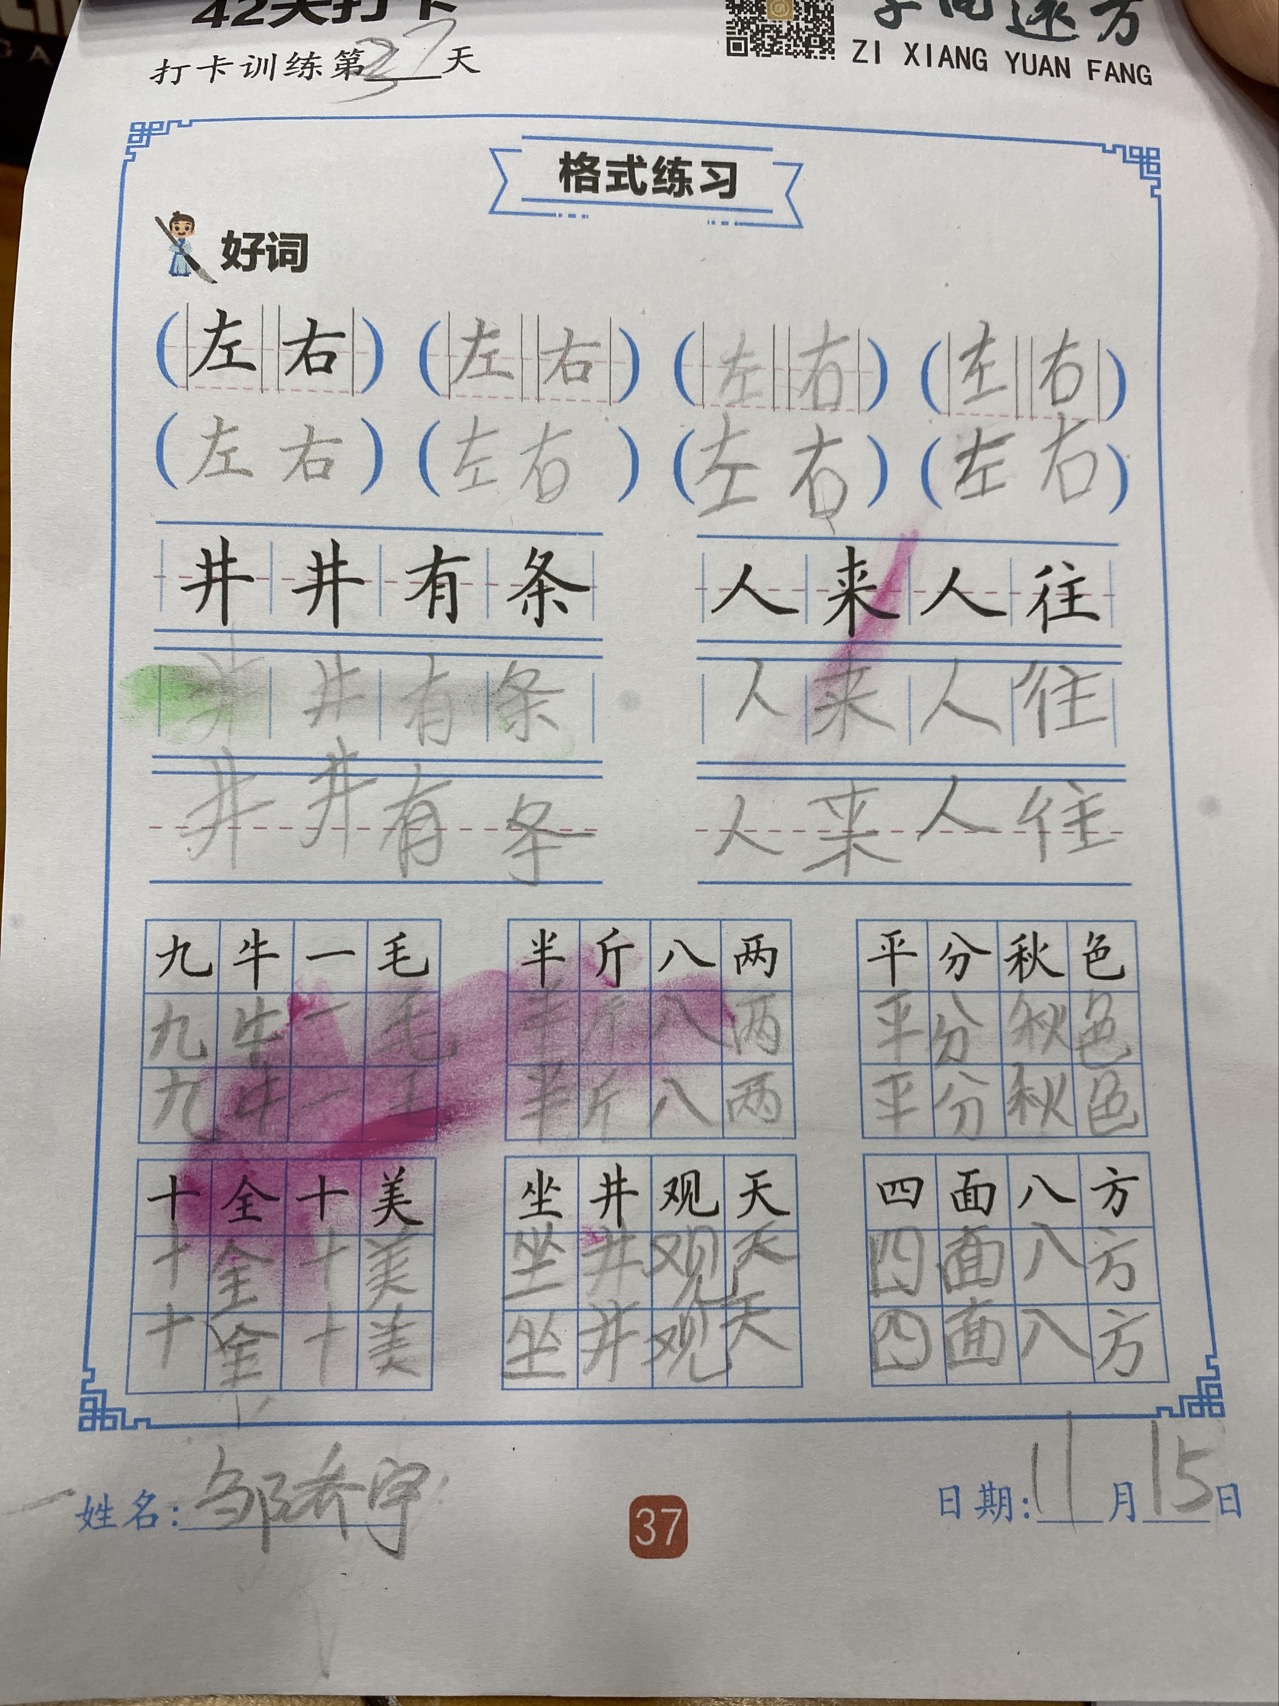 42天打卡
字向远方
打卡训练第37天
ZI XIANG YUAN FANG
格式练习
好词
(左右) (左右) (左右) (左右)
(左右) (左右) (左右) (左右)
井井有条 人来人往
井井有条 人来人往
井井有条 人来人往
九牛一毛 半斤八两 平分秋色
九牛一毛 半斤八两 平分秋色
九牛一毛 半斤八两 平分秋色
十全十美 坐井观天 四面八方
十全十美 坐井观天 四面八方
十全十美 坐井观天 四面八方
姓名:邹乔宇 37 日期:11月15日